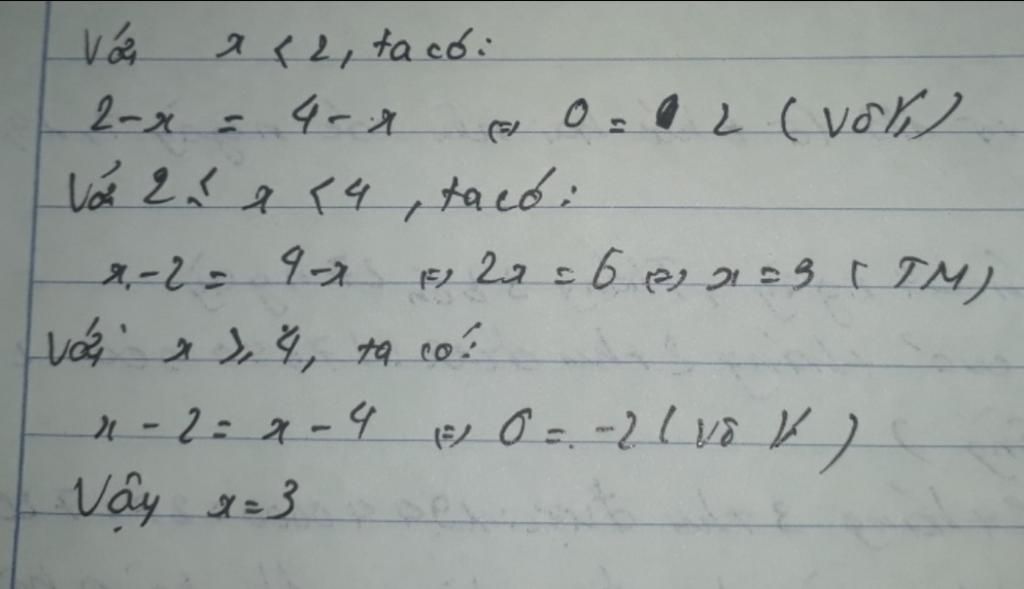 Với x < 2, ta có:
2-x = 4-x ⇔ 0 = 2 (Vô lý)
Với 2 ≤ x < 4, ta có:
x-2 = 4-x ⇔ 2x = 6 ⇔ x = 3 (TM)
Với x ≥ 4, ta có:
x-2 = x-4 ⇔ 0 = -2 (Vô lý)
Vậy x = 3